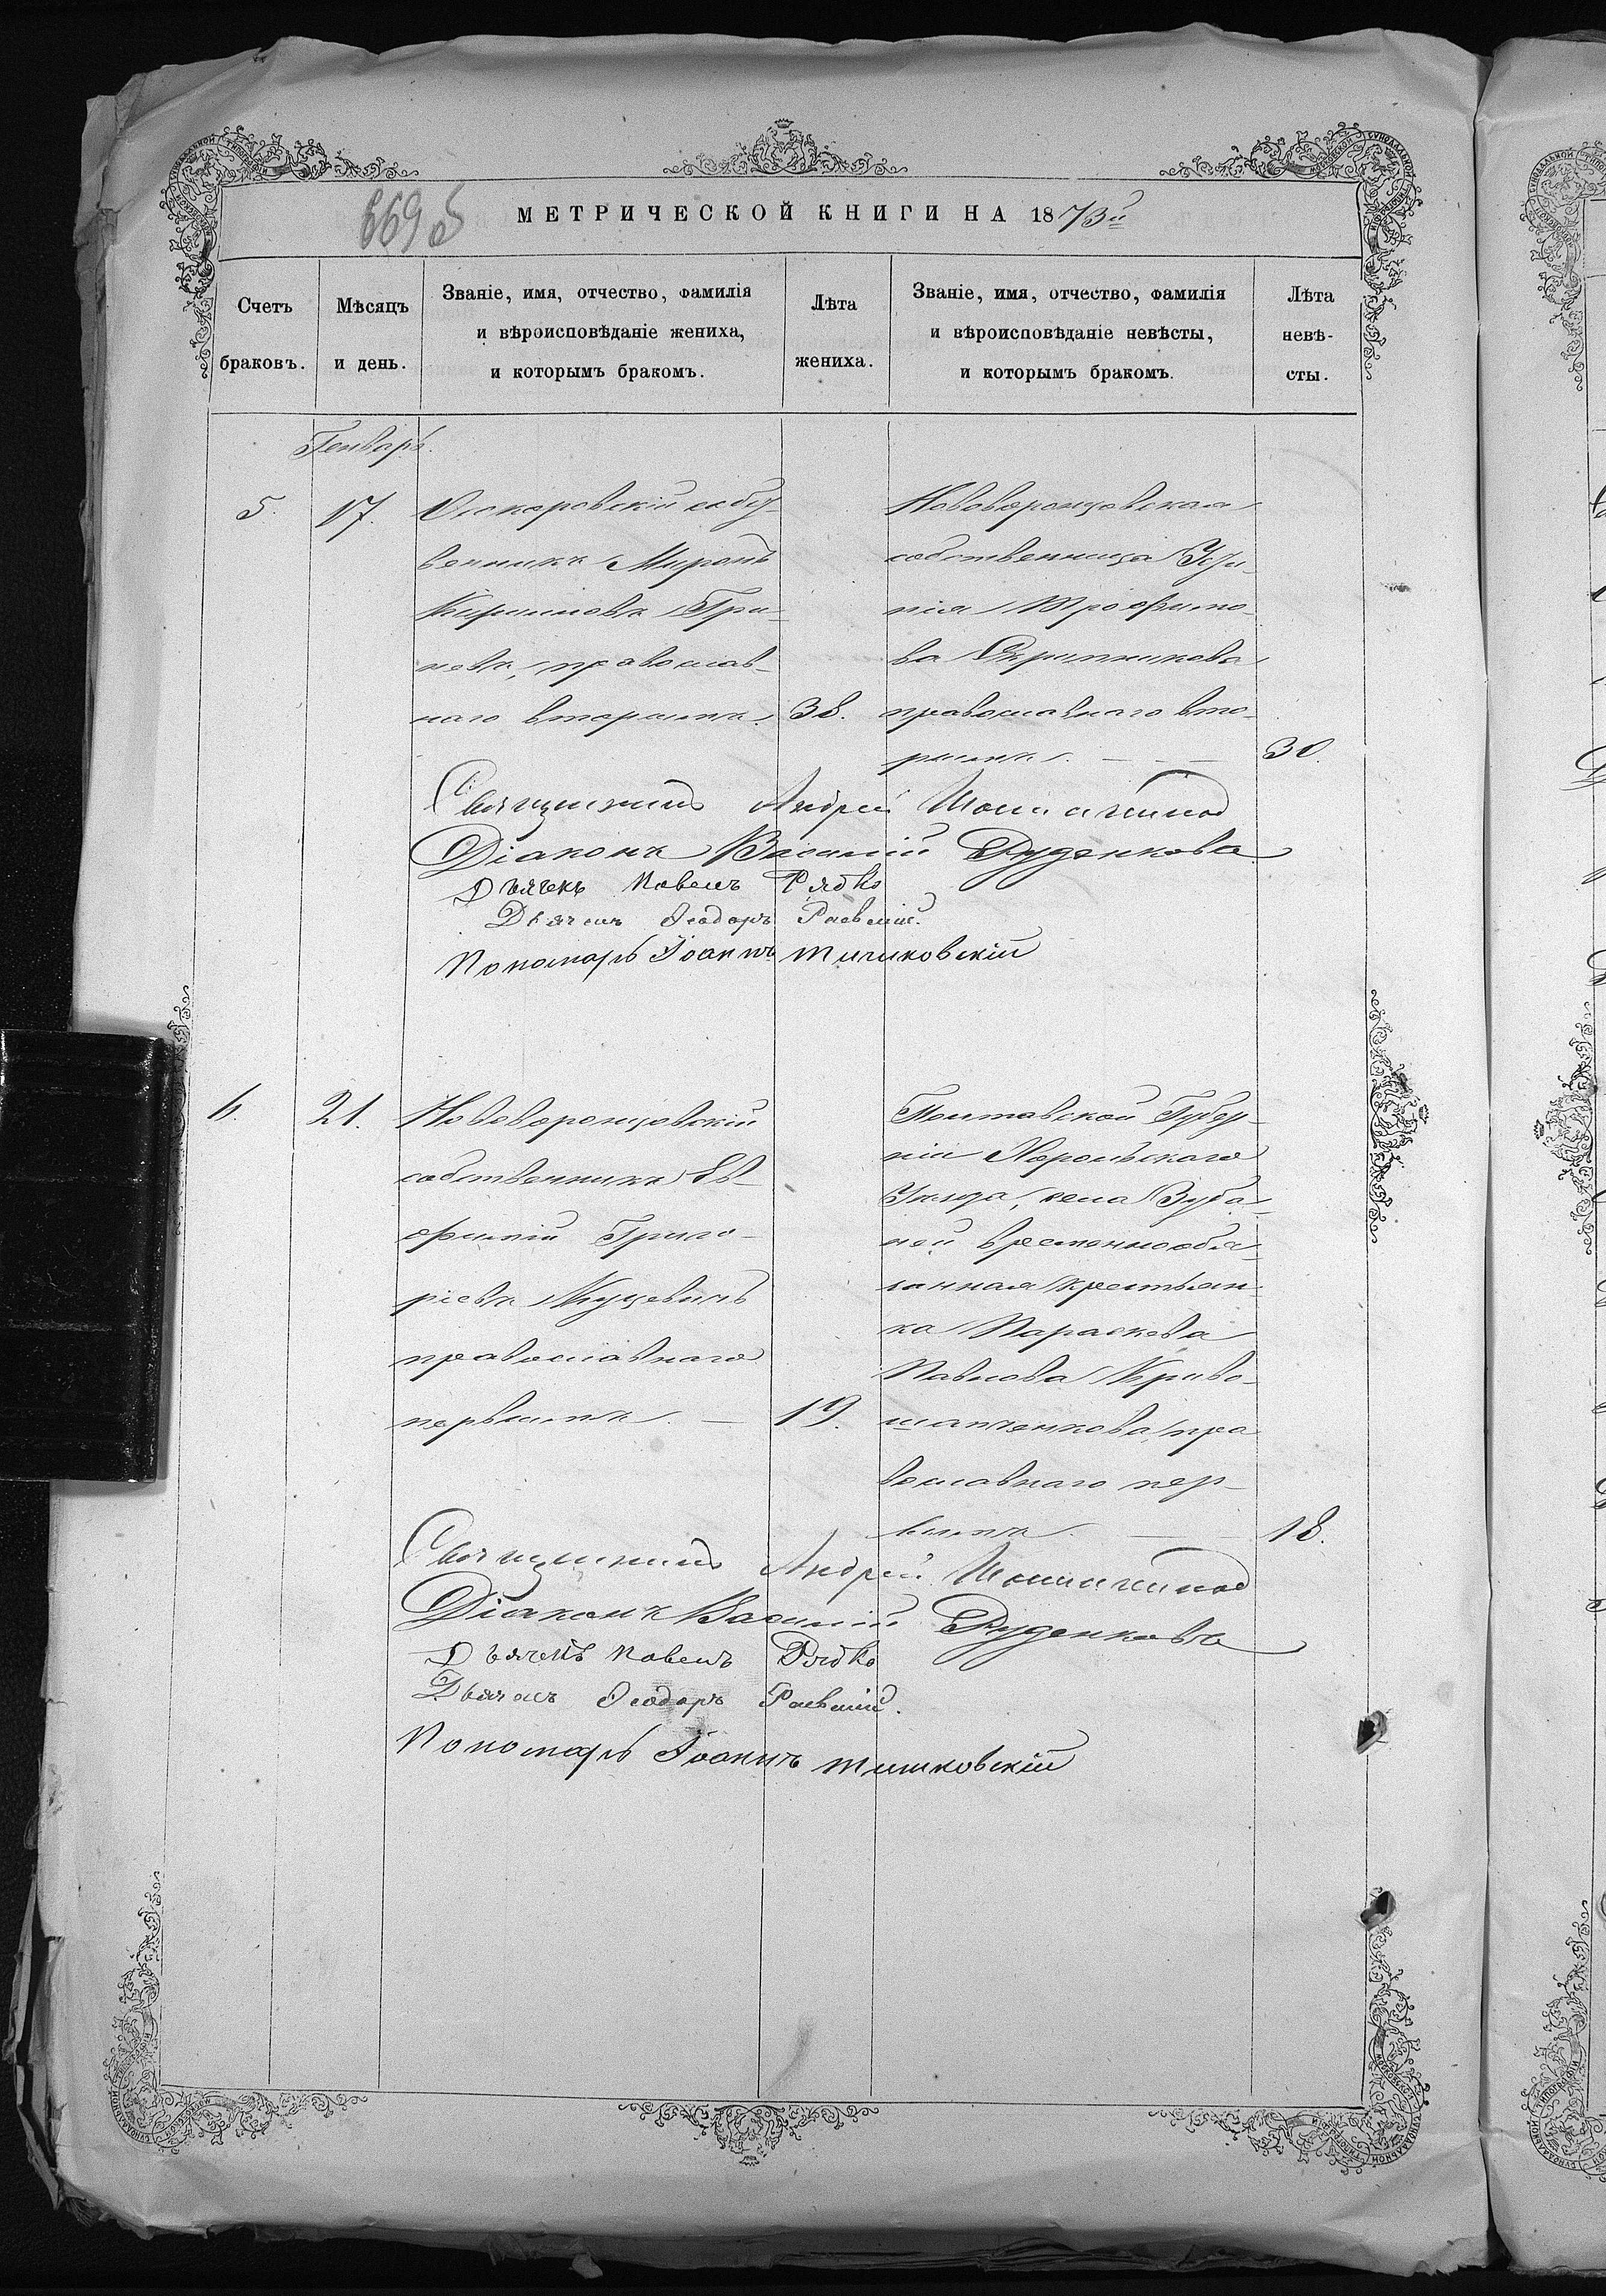 669 б
МЕТРИЧЕСКОЙ КНИГИ НА 1873й
Счетъ браковъ.
Мѣсяцъ и день.
Званіе, имя, отчество, фамилія
и вѣроисповѣданіе жениха,
и которымъ бракомъ.
Лѣта
жениха.
Званіе, имя, отчество, фамилія
и вѣроисповѣданіе невѣсты,
и которымъ бракомъ.
Лѣта
невѣ-
сты.
Генварь.
5.
17.
венникъ Миронъ
Кирилловъ Гри-
невъ, православ-
наго вторымъ.
38.
Нововоронцовская
собственница
нія Трофимо-
ва Скрипникова
православнаго вто-
рымъ. — —
30.
Священникъ Андрей
Діаконъ Василій Руденковъ
Дьячекъ Павелъ Рябко
Дьячекъ Ѳеодоръ Раевскій.
Пономарь Іоаннъ Тимковскій
6.
21.
Нововоронцовскій
собственникъ Ев-
фимій Григо-
ріевъ Куцевичъ
православнаго
первымъ. —
19.
Полтавской Губер-
ніи Хорольскаго
Уѣзда, села Зуба-
ней временнообя-
занная крестьян-
ка Параскева
Павлова Криво-
шапченкова, пра
вославнаго пер-
вымъ. —
18.
Священникъ Андрей
Діаконъ Василій Руденковъ
Дьячекъ Павелъ Рябко
Дьячекъ Ѳеодоръ Раевскій.
Пономарь Іоаннъ Тимковскій